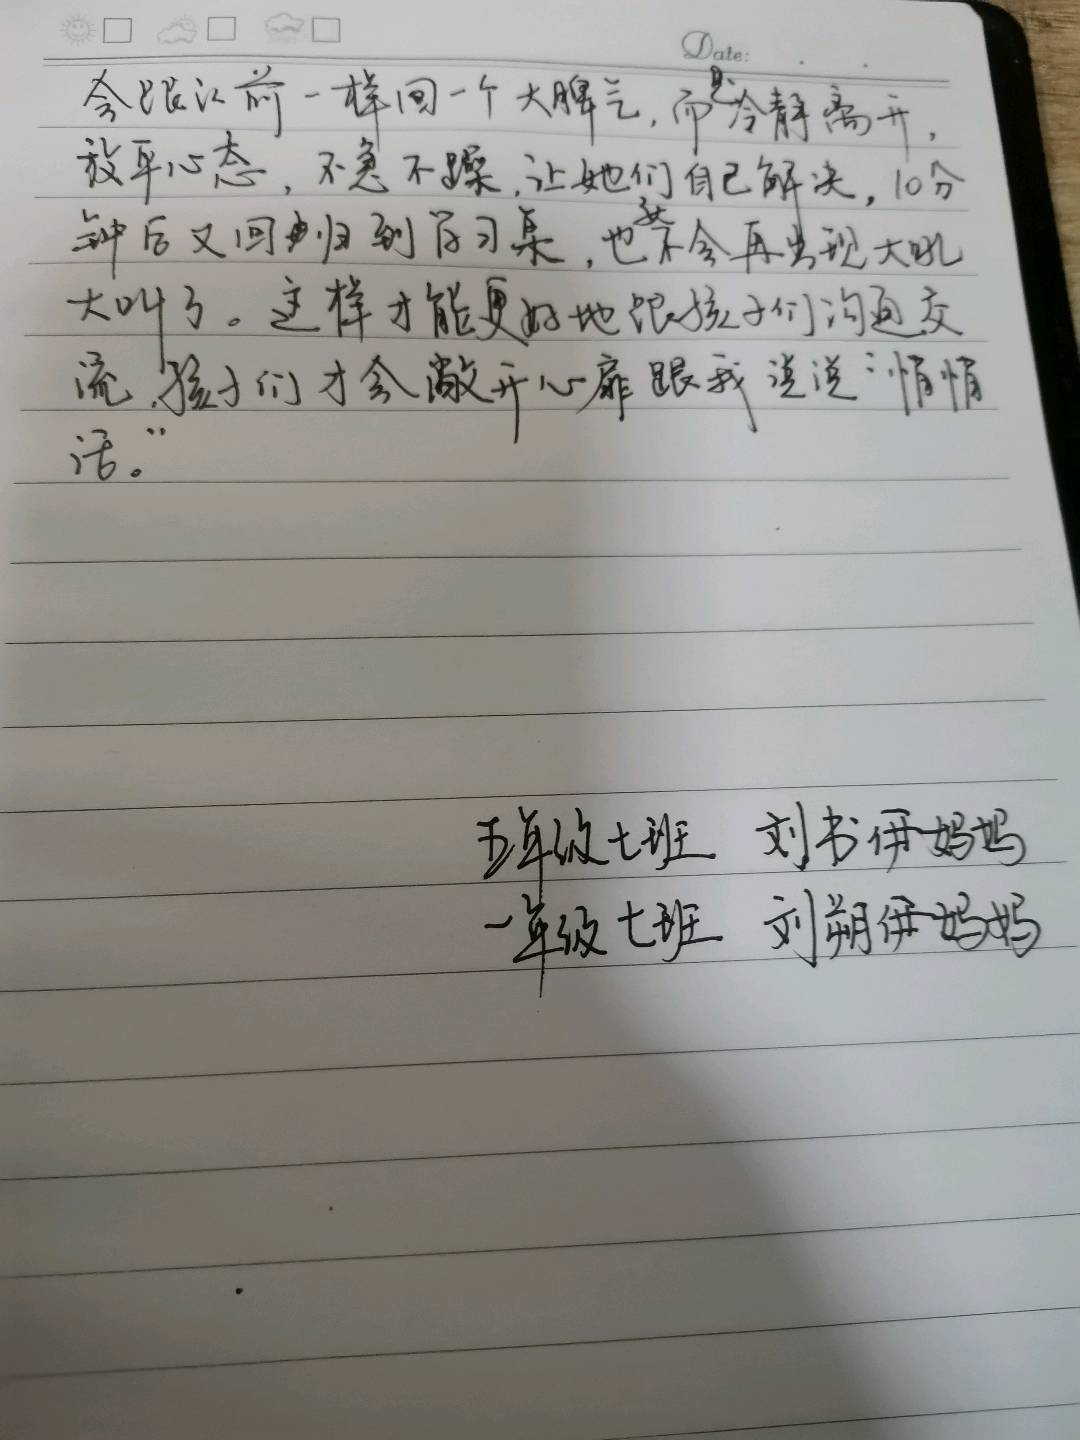 Date:
会跟以前一样回一个大脾气,而是冷静离开,
放平心态,不急不躁,让她们自己解决,10分
钟后又回归到学习桌,也就不会再出现大吼
大叫了。这样才能更好地跟孩子们沟通交
流,孩子们才会敞开心扉跟我说说“悄悄
话。”
五年级七班 刘书伊妈妈
一年级七班 刘朔伊妈妈